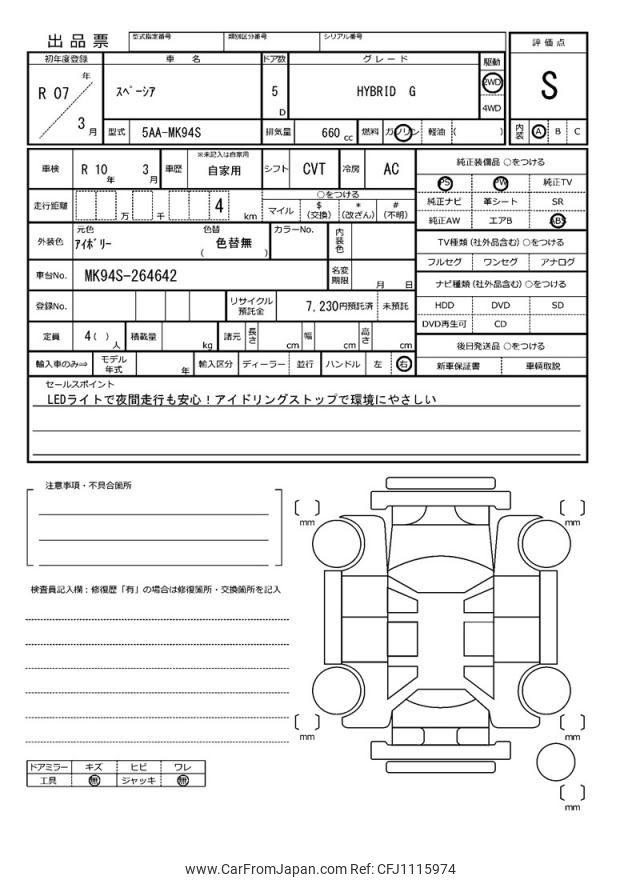 出品票 型式指定番号 類別区分番号 シリアル番号
評価点
S
内装 A B C
初年度登録 車名 ドア数 グレード 駆動
R 07 年 3 月
スペーシア
5 D
HYBRID G
2WD
4WD
型式 5AA-MK94S 排気量 660 cc 燃料 ガソリン 軽油 ( )
車検 R 10 年 3 月 車歴 ※未記入は自家用 自家用 シフト CVT 冷房 AC
走行距離 万 千 4 km ○をつける
マイル $ (交換) * (改ざん) # (不明)
外装色 元色 アイボリー 色替 色替無 ( ) カラーNo. 内装色
車台No. MK94S-264642 名変期限 月 日
登録No. リサイクル預託金 7,230円預託済 未預託
定員 4( ) 人 積載量 kg 諸元 長さ cm 幅 cm 高さ cm
輸入車のみ⇒ モデル年式 年 輸入区分 ディーラー 並行 ハンドル 左 右
純正装備品 ○をつける
PS PW 純正TV
純正ナビ 革シート SR
純正AW エアB ABS
TV種類(社外品含む)○をつける
フルセグ ワンセグ アナログ
ナビ種類(社外品含む)○をつける
HDD DVD SD
DVD再生可 CD
後日発送品 ○をつける
新車保証書 車輌取説
セールスポイント
LEDライトで夜間走行も安心！アイドリングストップで環境にやさしい
注意事項・不具合箇所
検査員記入欄：修復歴「有」の場合は修復箇所・交換箇所を記入
ドアミラー キズ ヒビ ワレ
工具 無 ジャッキ 無
[ ] mm
[ ] mm
[ ] mm
[ ] mm
[ ] mm
www.CarFromJapan.com Ref: CFJ1115974